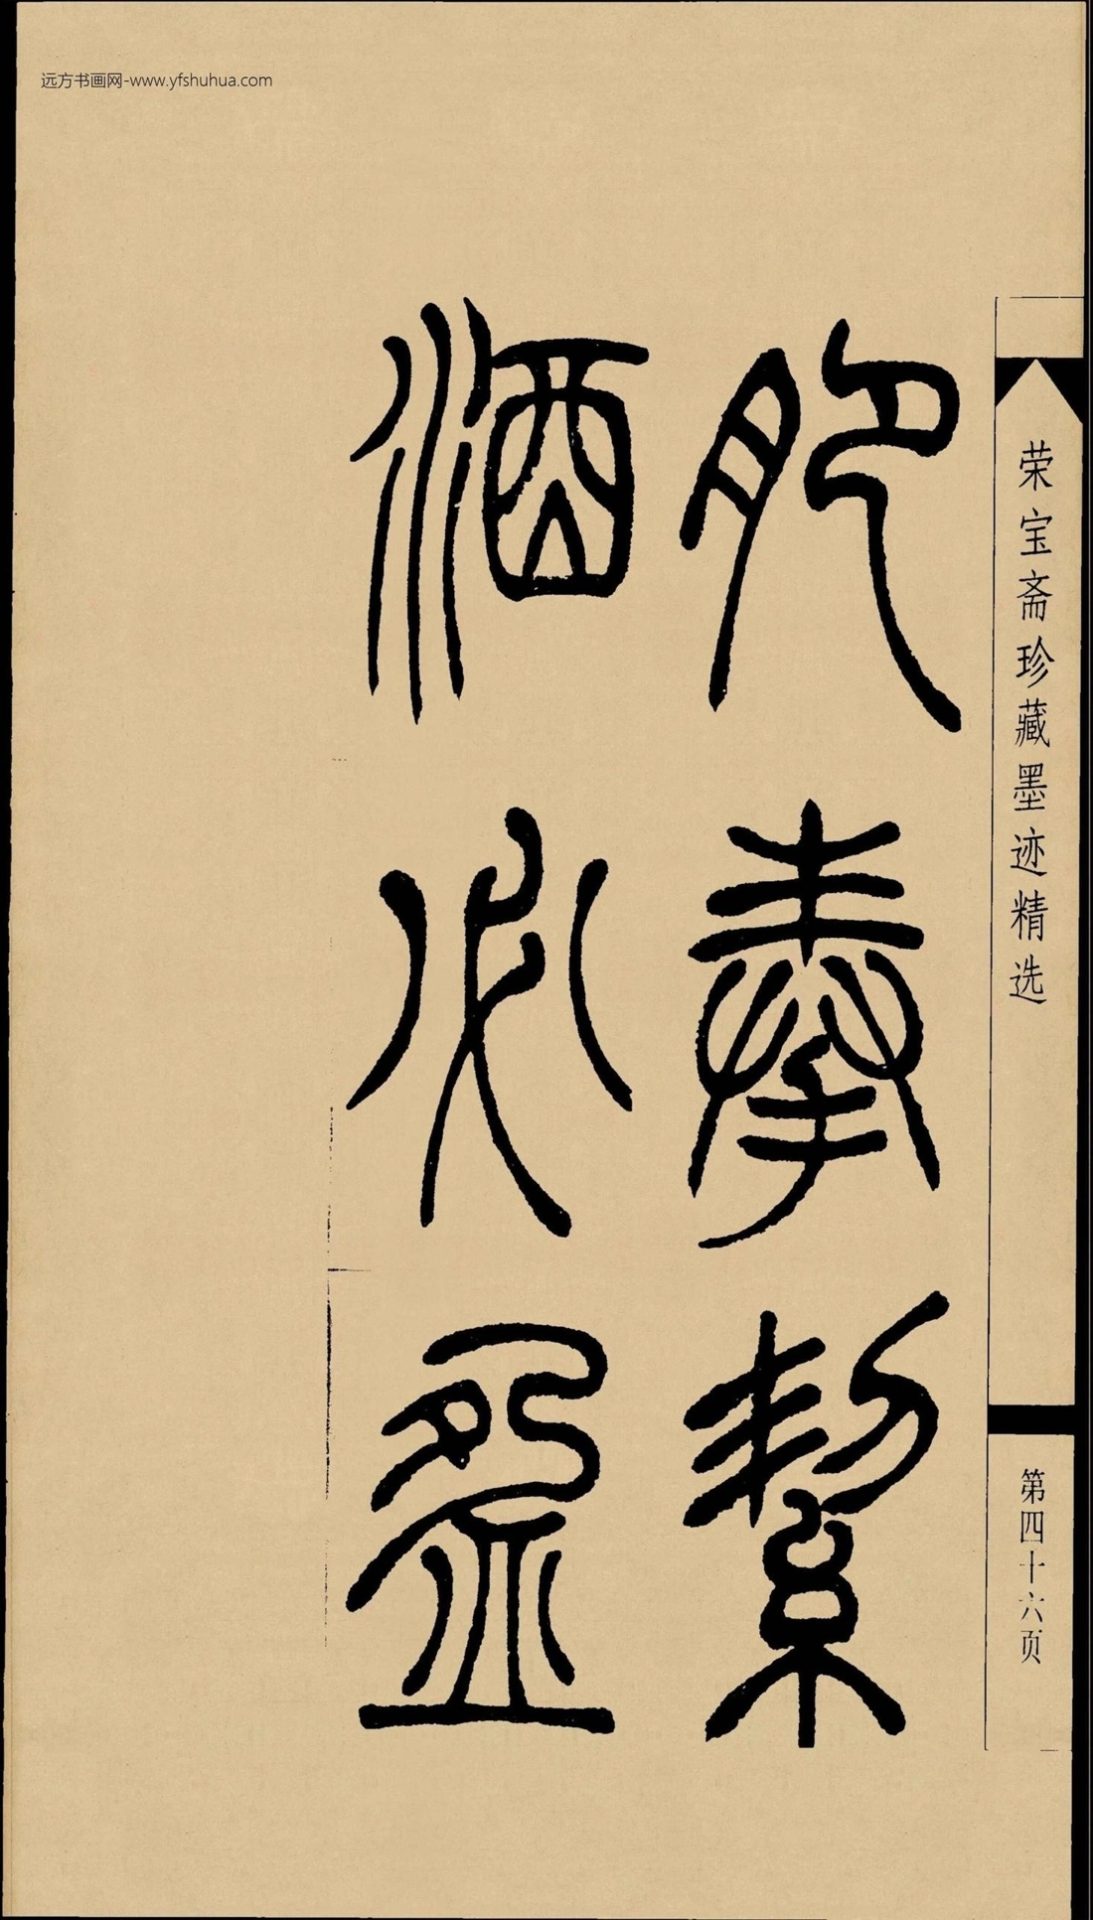 远方书画网-www.yfshuhua.com
荣宝斋珍藏墨迹精选
第四十六页
肥奉絜
酒必盈